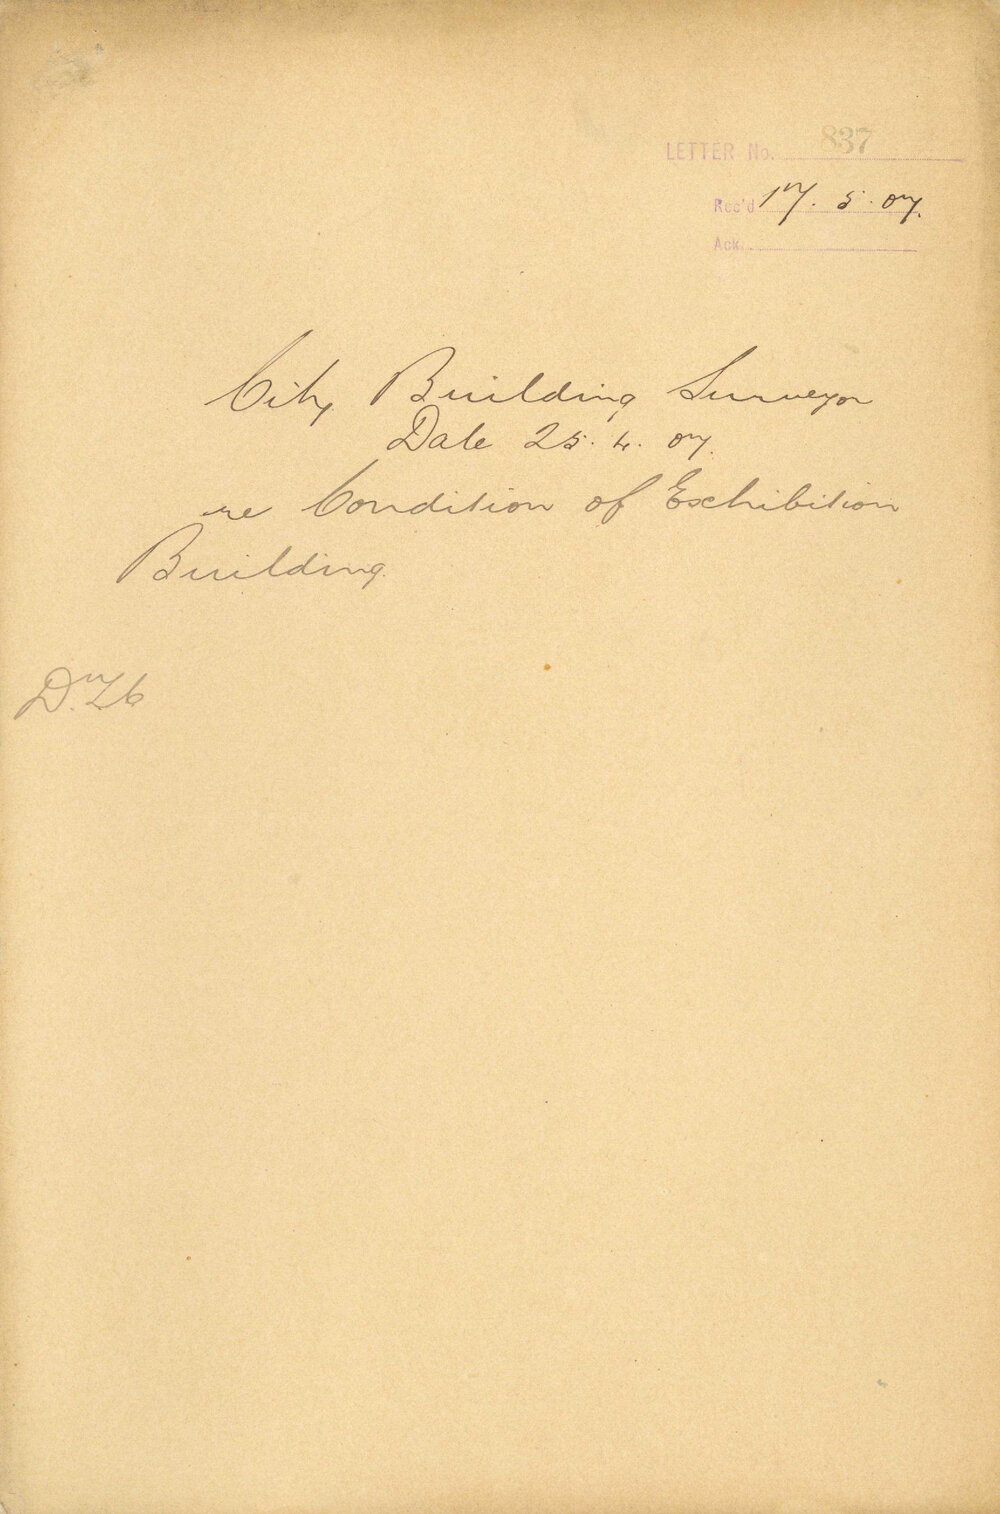 LETTER No. 837
Rec'd 17. 5. 07.
Ack.
City Building Surveyor
Date 25. 4. 07.
re Condition of Exhibition
Building